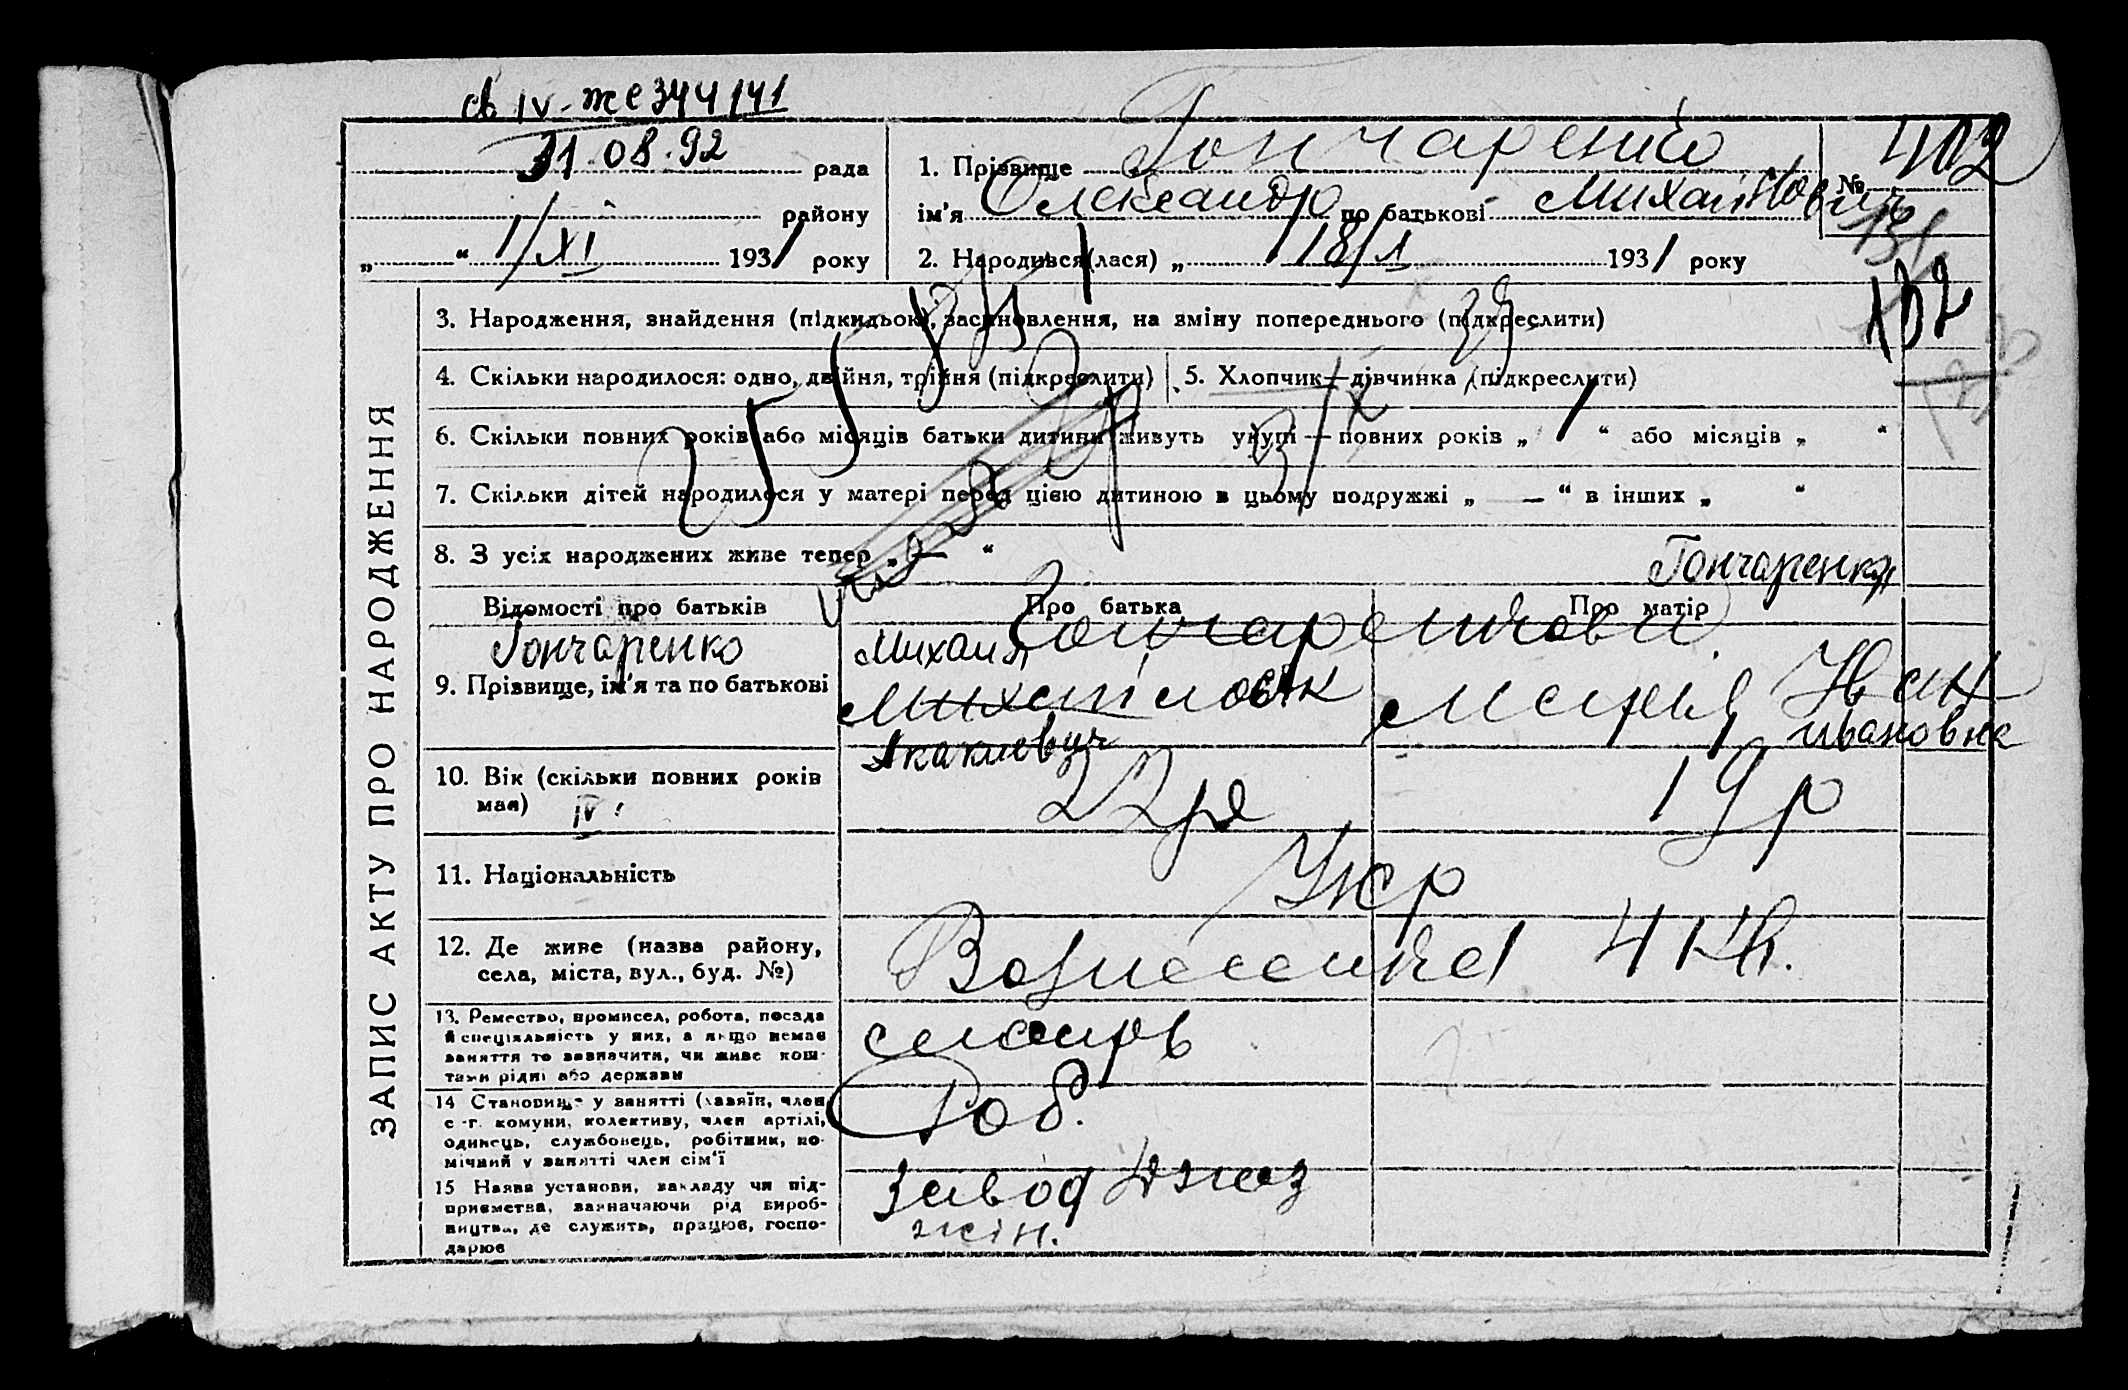 св IV-ЖС 344141
31.08.92 рада
району
„ “ 1/XI 1931 року
1. Прізвище Гончаренко
ім’я Олександр по батькові Михайлович
№ 402
132
2. Народився(лася) „ 18/X 1931 року
ЗАПИС АКТУ ПРО НАРОДЖЕННЯ
3. Народження, знайдення (підкидьок), засиновлення, на зміну попереднього (підкреслити)
4. Скільки народилося: одно, двійня, трійня (підкреслити)
5. Хлопчик—дівчинка (підкреслити)
6. Скільки повних років або місяців батьки дитини живуть укупі — повних років „ 1 “ або місяців „ “
7. Скільки дітей народилося у матері перед цією дитиною в цьому подружжі „ — “ в інших „ “
8. З усіх народжених живе тепер „ — “
Гончаренко
Відомості про батьків
Про батька
Про матір
Гончаренко
9. Прізвище, ім’я та по батькові
Гончаренкови
Михаил
Акакиевич
Марья Иван
Ивановна
10. Вік (скільки повних років має)
IV
22
19 р
11. Національність
Укр
12. Де живе (назва району,
села, міста, вул., буд. №)
Вознесенка 4 кв.
13. Ремество, промисел, робота, посада
й спеціяльність у них, а якщо немає
заняття то зазначити, чи живе кош-
тами рідні або держави
слюсарь
14 Становище у занятті (хазяїн, член
с.-г. комуни, колективу, член артілі,
одинець, службовець, робітник, по-
мічний у занятті член сім’ї
Роб.
15 Назва установи, закладу чи під-
приємства, зазначаючи рід вироб-
ництва, де служить, працює, госпо-
дарює
Завод